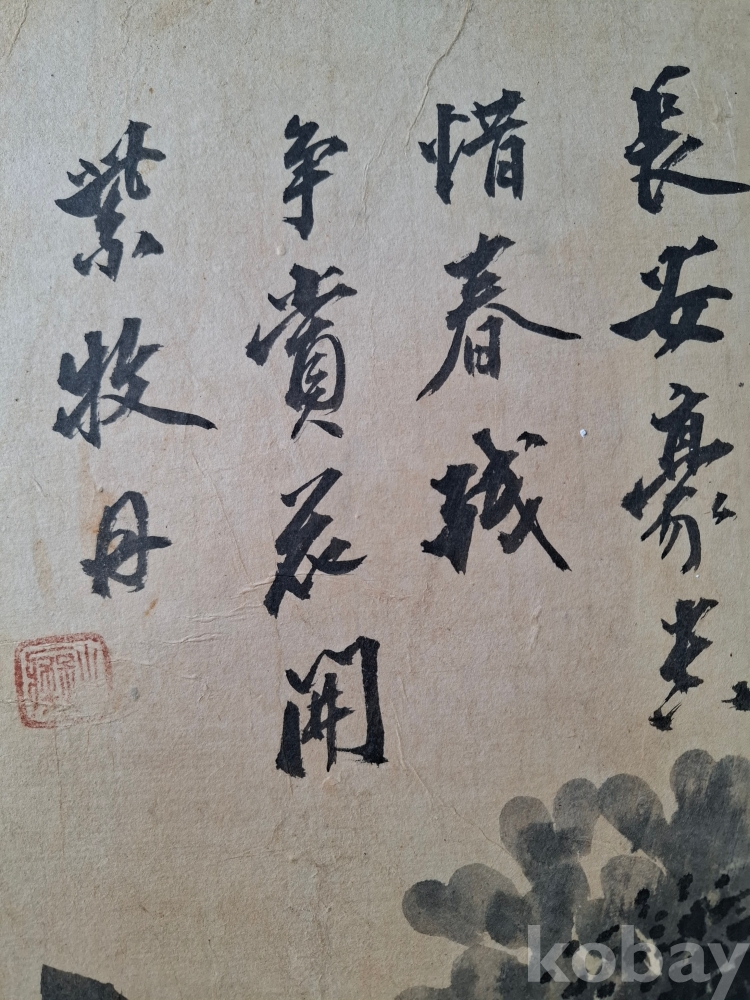 長安豪貴
惜春殘
争賞花開
紫牧丹
kobay